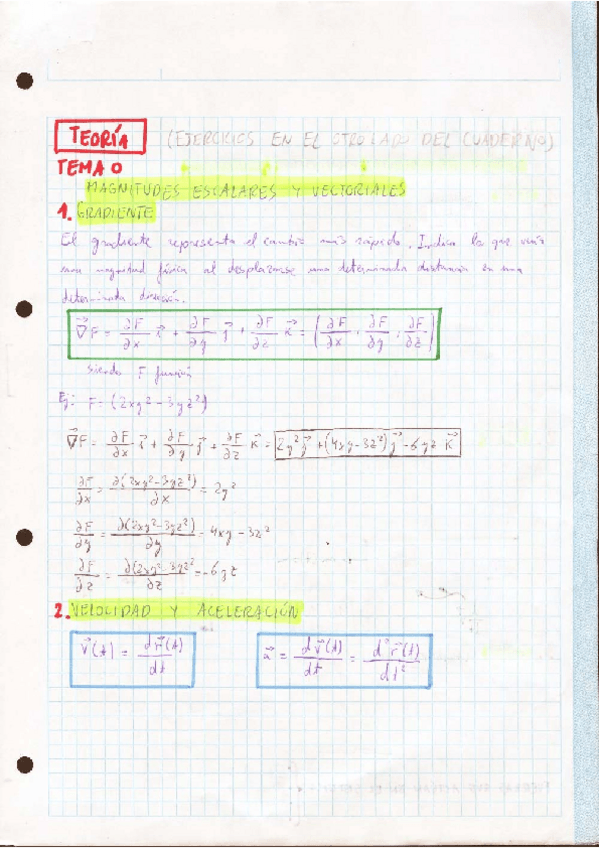 TEORÍA (EJERCICIOS EN EL OTRO LADO DEL CUADERNO)
TEMA 0
MAGNITUDES ESCALARES Y VECTORIALES
1. GRADIENTE
El gradiente representa el cambio más rápido. Indica lo que varía
una magnitud física al desplazarse una determinada distancia en una
determinada dirección.
∇⃗F = ∂F/∂x i⃗ + ∂F/∂y j⃗ + ∂F/∂z k⃗ = (∂F/∂x, ∂F/∂y, ∂F/∂z)
siendo F función
Ej: F = (2xy² - 3yz²)
∇⃗F = ∂F/∂x i⃗ + ∂F/∂y j⃗ + ∂F/∂z k⃗ = 2y² j⃗ + (4xy - 3z²) j⃗ - 6yz k⃗
∂F/∂x = ∂(2xy² - 3yz²)/∂x = 2y²
∂F/∂y = ∂(2xy² - 3yz²)/∂y = 4xy - 3z²
∂F/∂z = ∂(2xy² - 3yz²)/∂z = -6yz
2. VELOCIDAD Y ACELERACIÓN
v⃗(t) = dr⃗(t)/dt a⃗ = dv⃗(t)/dt = d²r⃗(t)/dt²